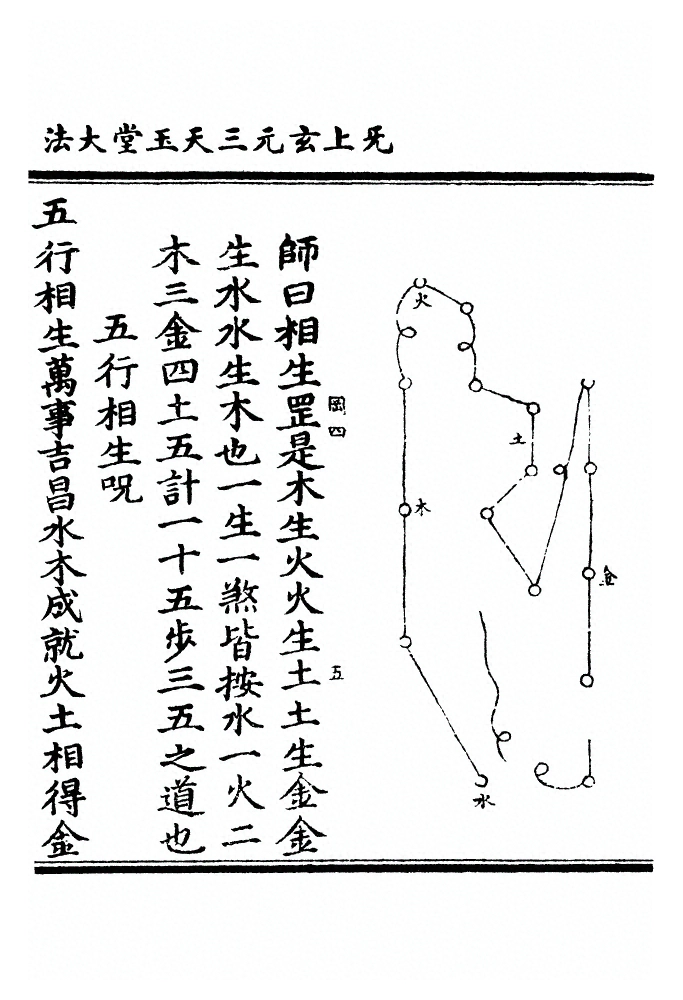 无上玄元三天玉堂大法
火
土
木
金
水
岡四
五
師曰相生罡是木生火火生土土生金金
生水水生木也一生一煞皆按水一火二
木三金四土五計一十五步三五之道也
五行相生呪
五行相生萬事吉昌水木成就火土相得金